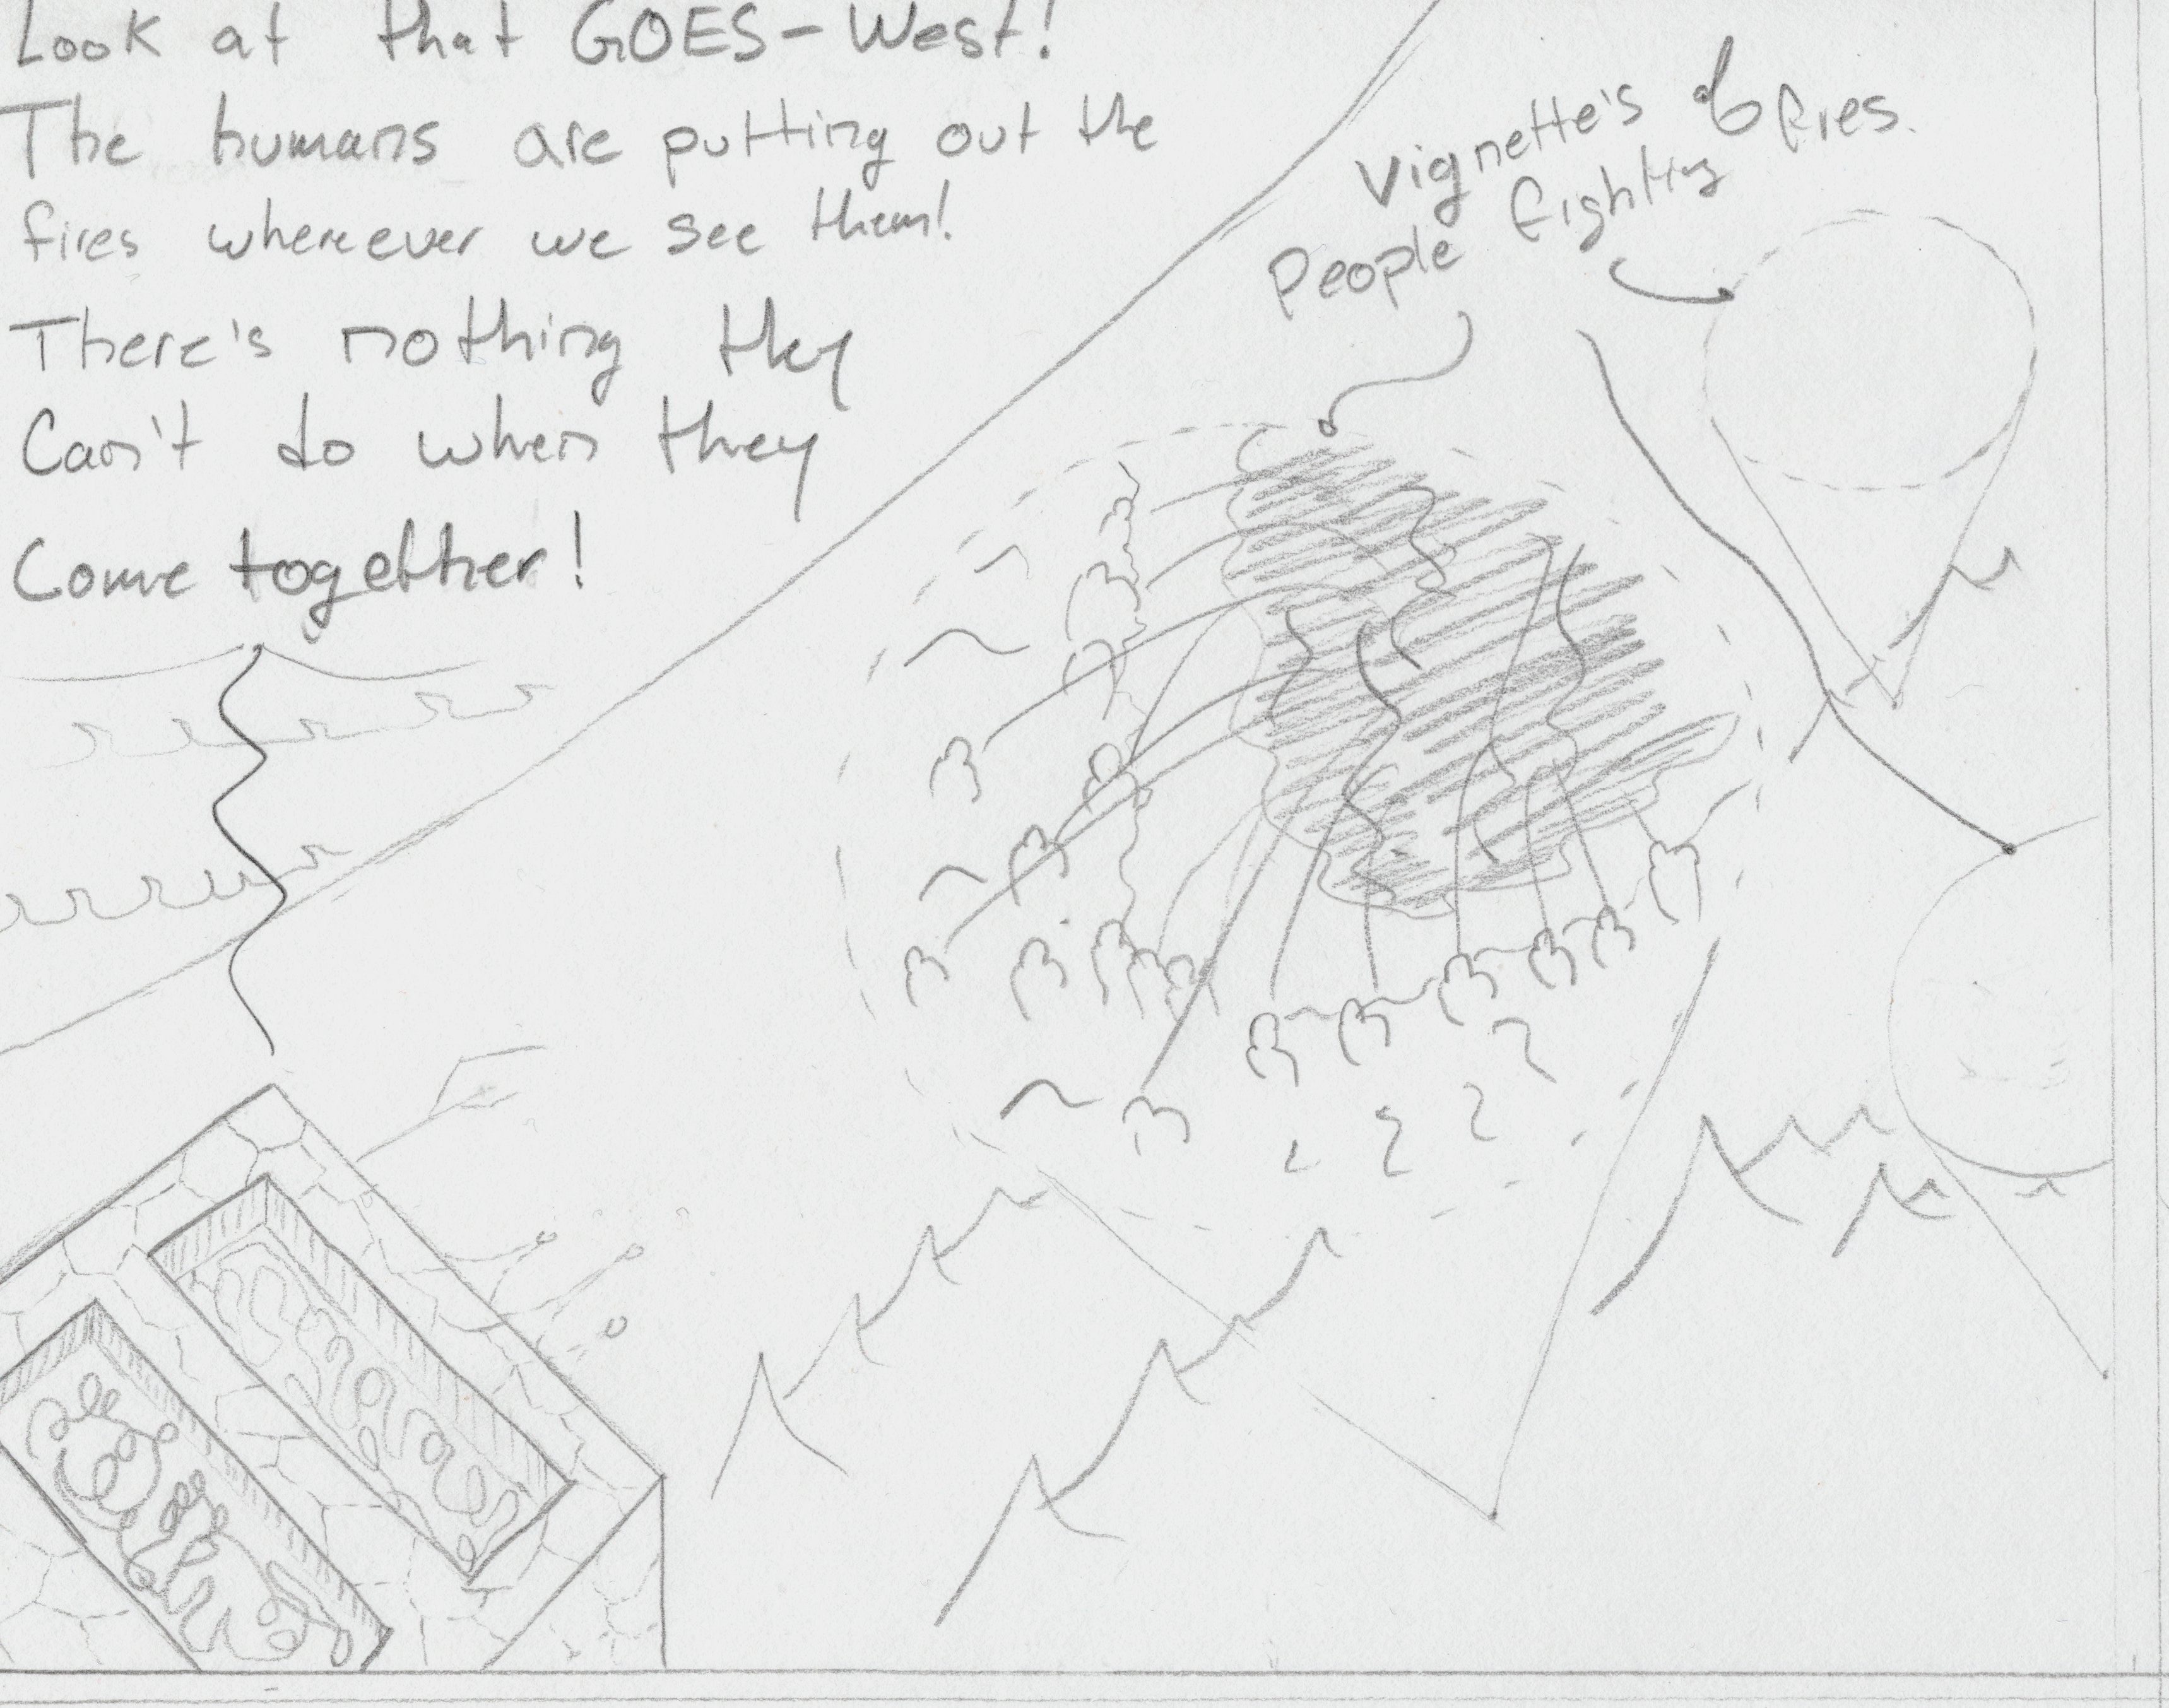 Look at that GOES-West!
The humans are putting out the
fires whereever we see them!
There's nothing they
Can't do when they
Come together!
Vignette's of
People fighting fires.